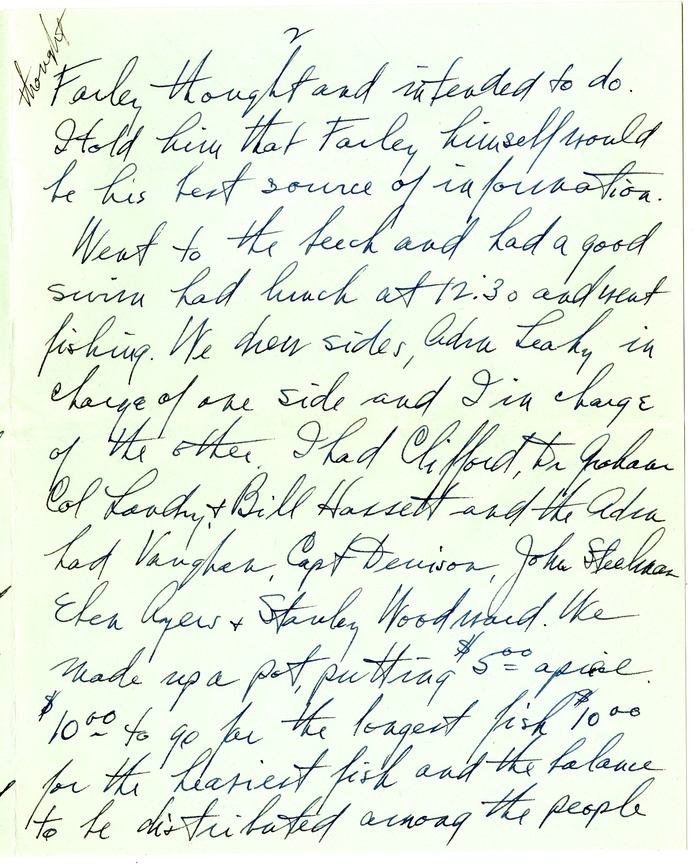 2
thought
Farley thought and intended to do.
I told him that Farley himself would
be his best source of information.
Went to the beech and had a good
swim had lunch at 12:30 and went
fishing. We drew sides, Adm Leahy in
charge of one side and I in charge
of the other. I had Clifford, Dr Graham
Col Landry, + Bill Hassett and the Adm
had Vaughan, Capt Denison, John Steelman
Eben Ayers + Stanley Woodward. We
made up a pot, putting $5.00 apiece.
$10.00 to go for the longest fish $10.00
for the heaviest fish and the balance
to be distributed among the people